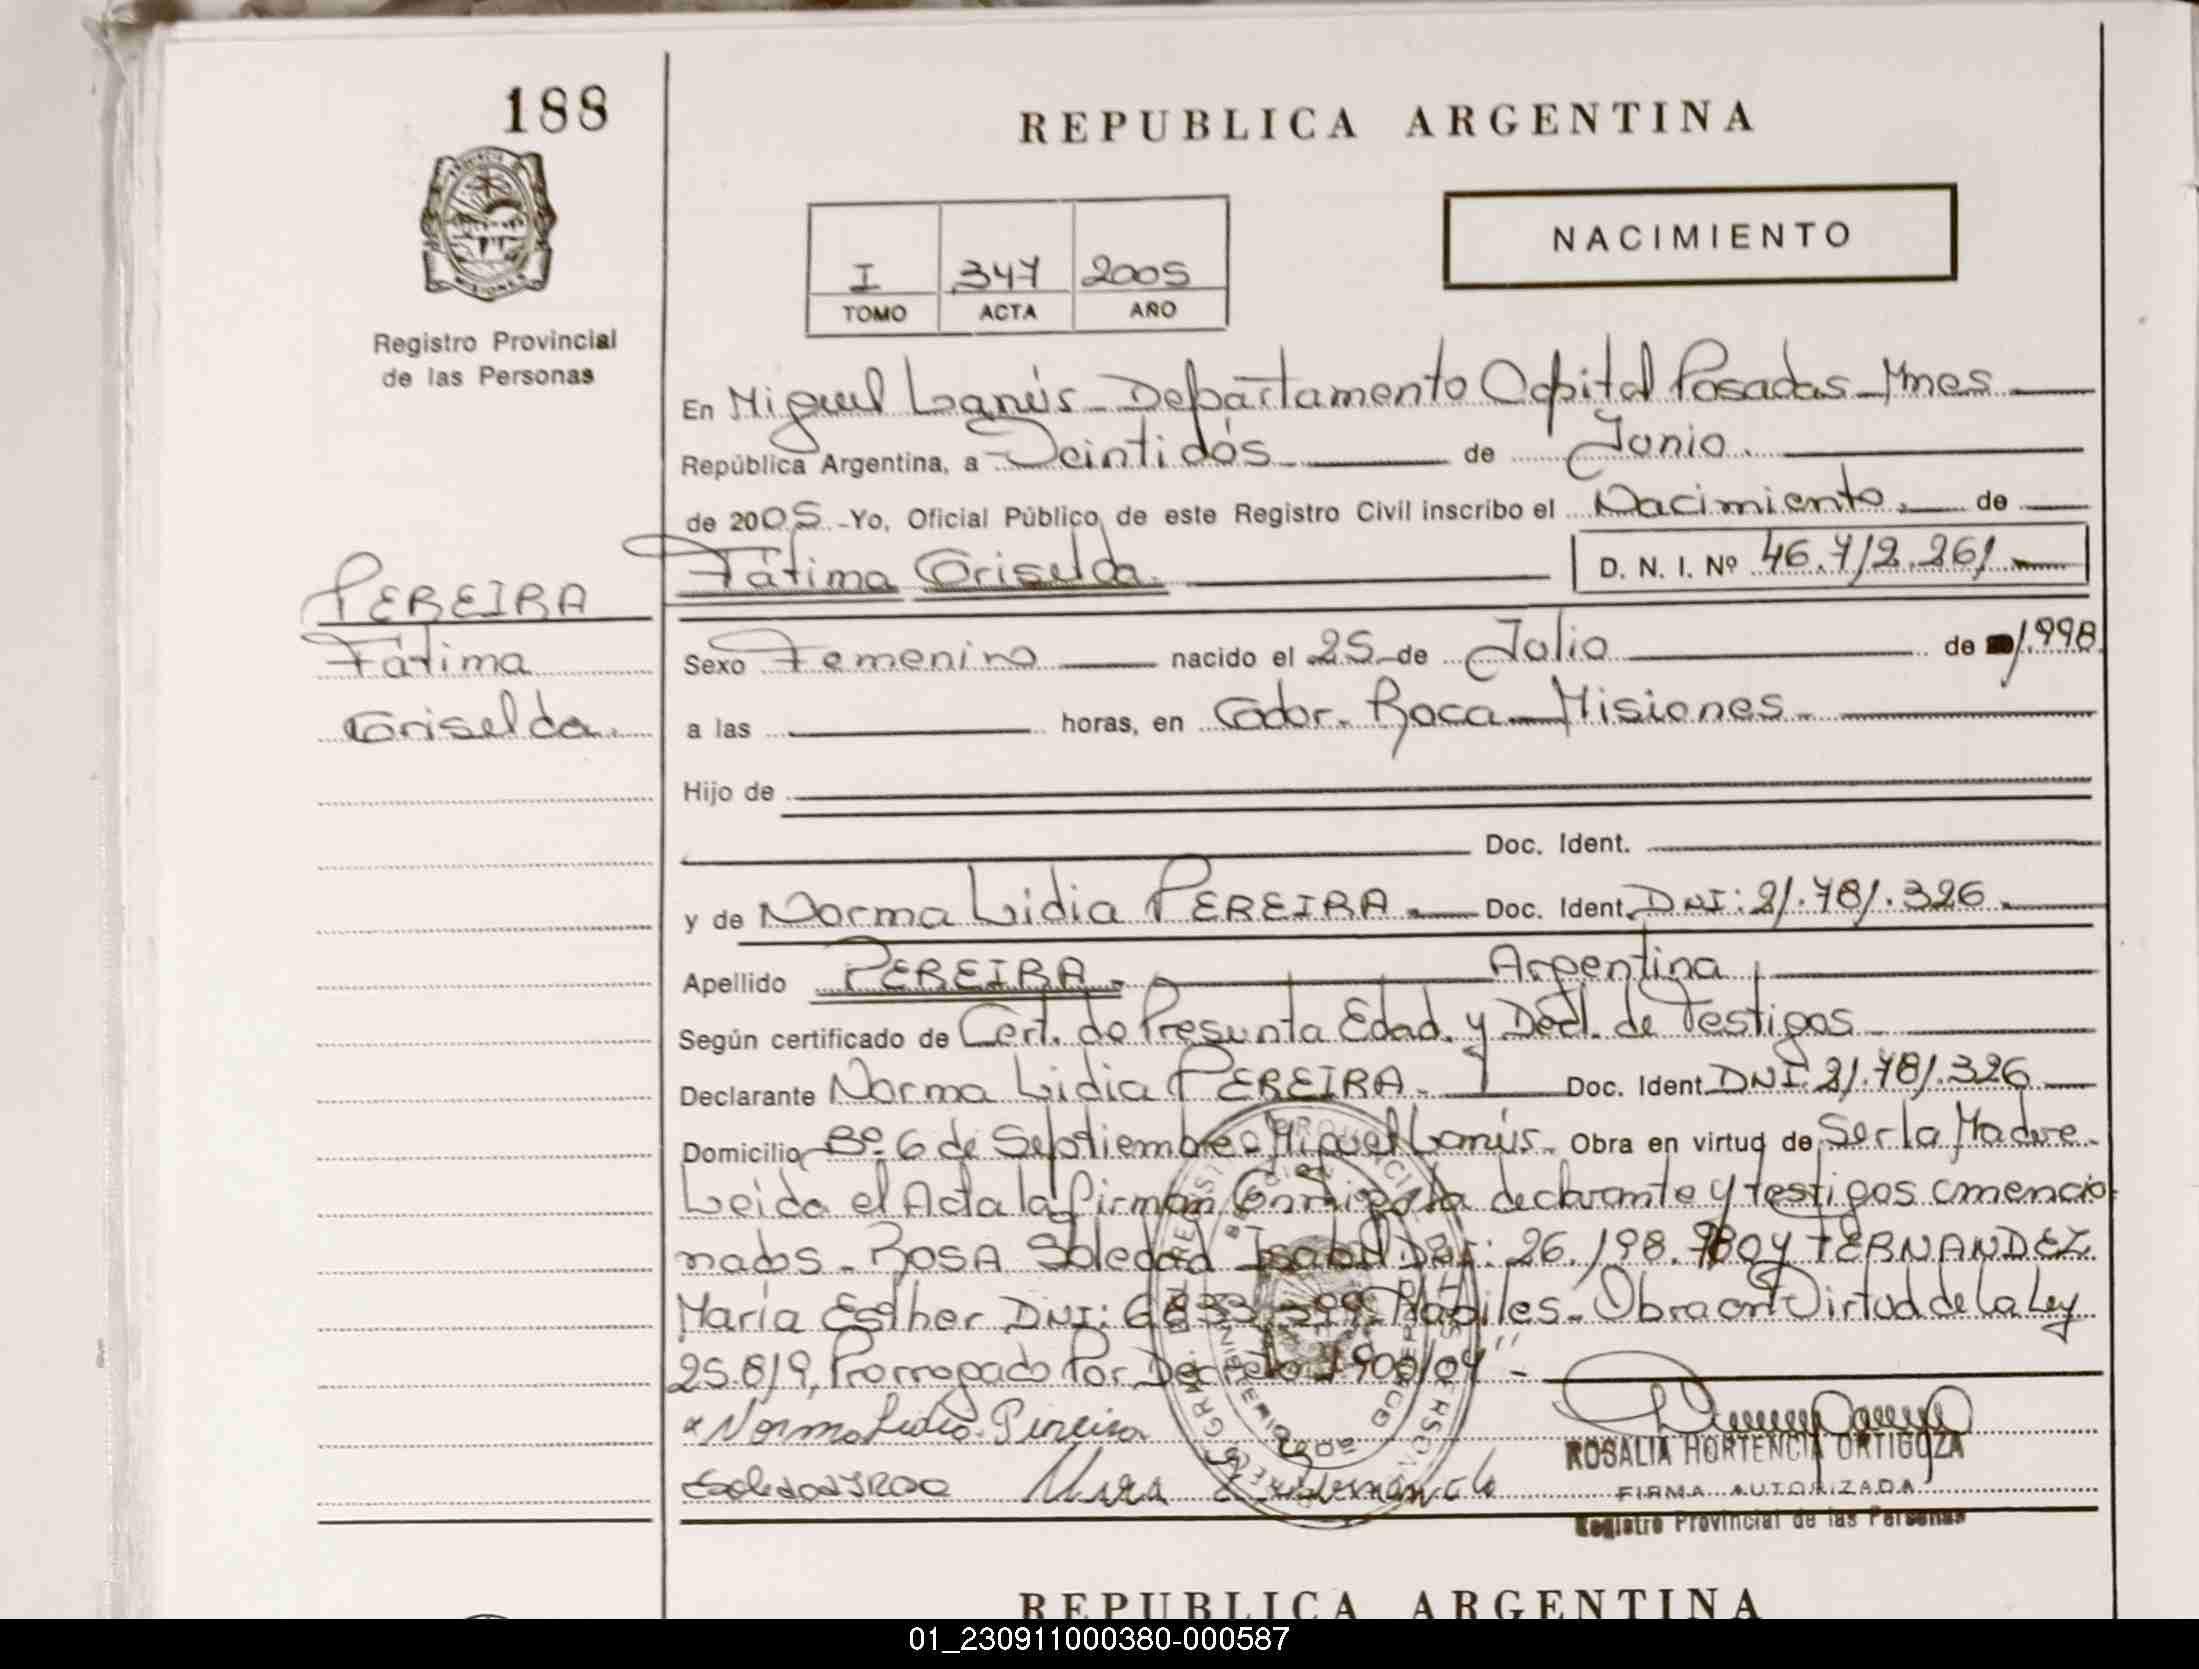 188
REPUBLICA ARGENTINA
NACIMIENTO
I 347 2005
TOMO ACTA AÑO
Registro Provincial
de las Personas
En Miguel Lanús - Departamento Capital Posadas - Mnes
República Argentina, a Veintidós de Junio
de 2005 - Yo, Oficial Público de este Registro Civil inscribo el Nacimiento de
Fátima Griselda. D. N. I. Nº 46.712.261
PEREIRA
Fátima
Griselda.
Sexo Femenino nacido el 25 de Julio de 1.998
a las horas, en Gdor. Roca - Misiones
Hijo de
Doc. Ident.
y de Norma Lidia PEREIRA Doc. Ident. DNI: 21.781.326
Apellido PEREIRA. Argentina
Según certificado de Cert. de Presunta Edad y Decl. de Testigos
Declarante Norma Lidia PEREIRA. Doc. Ident. DNI. 21.781.326
Domicilio Bº 6 de Septiembre - Miguel Lanús. Obra en virtud de Ser la Madre
Leida el Acta la firman Conmigo la declarante y testigos amencio
nados - ROSA Soledad Isabel DNI: 26.198. FERNANDEZ
María Esther DNI: Hábiles - Obra en Virtud de la Ley
25.819, Prorrogado Por Decreto 1900/04" -
Norma Lidia Pereira
ROSALIA HORTENCIA ORTIGOZA
FIRMA AUTORIZADA
Registro Provincial de las Personas
REPUBLICA ARGENTINA
01_230911000380-000587